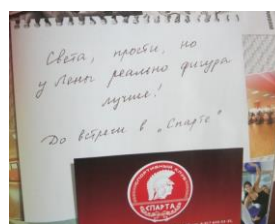 Света, прости, но
у Лены реально фигура
лучше!
До встречи в „Спарте"
СПАРТА